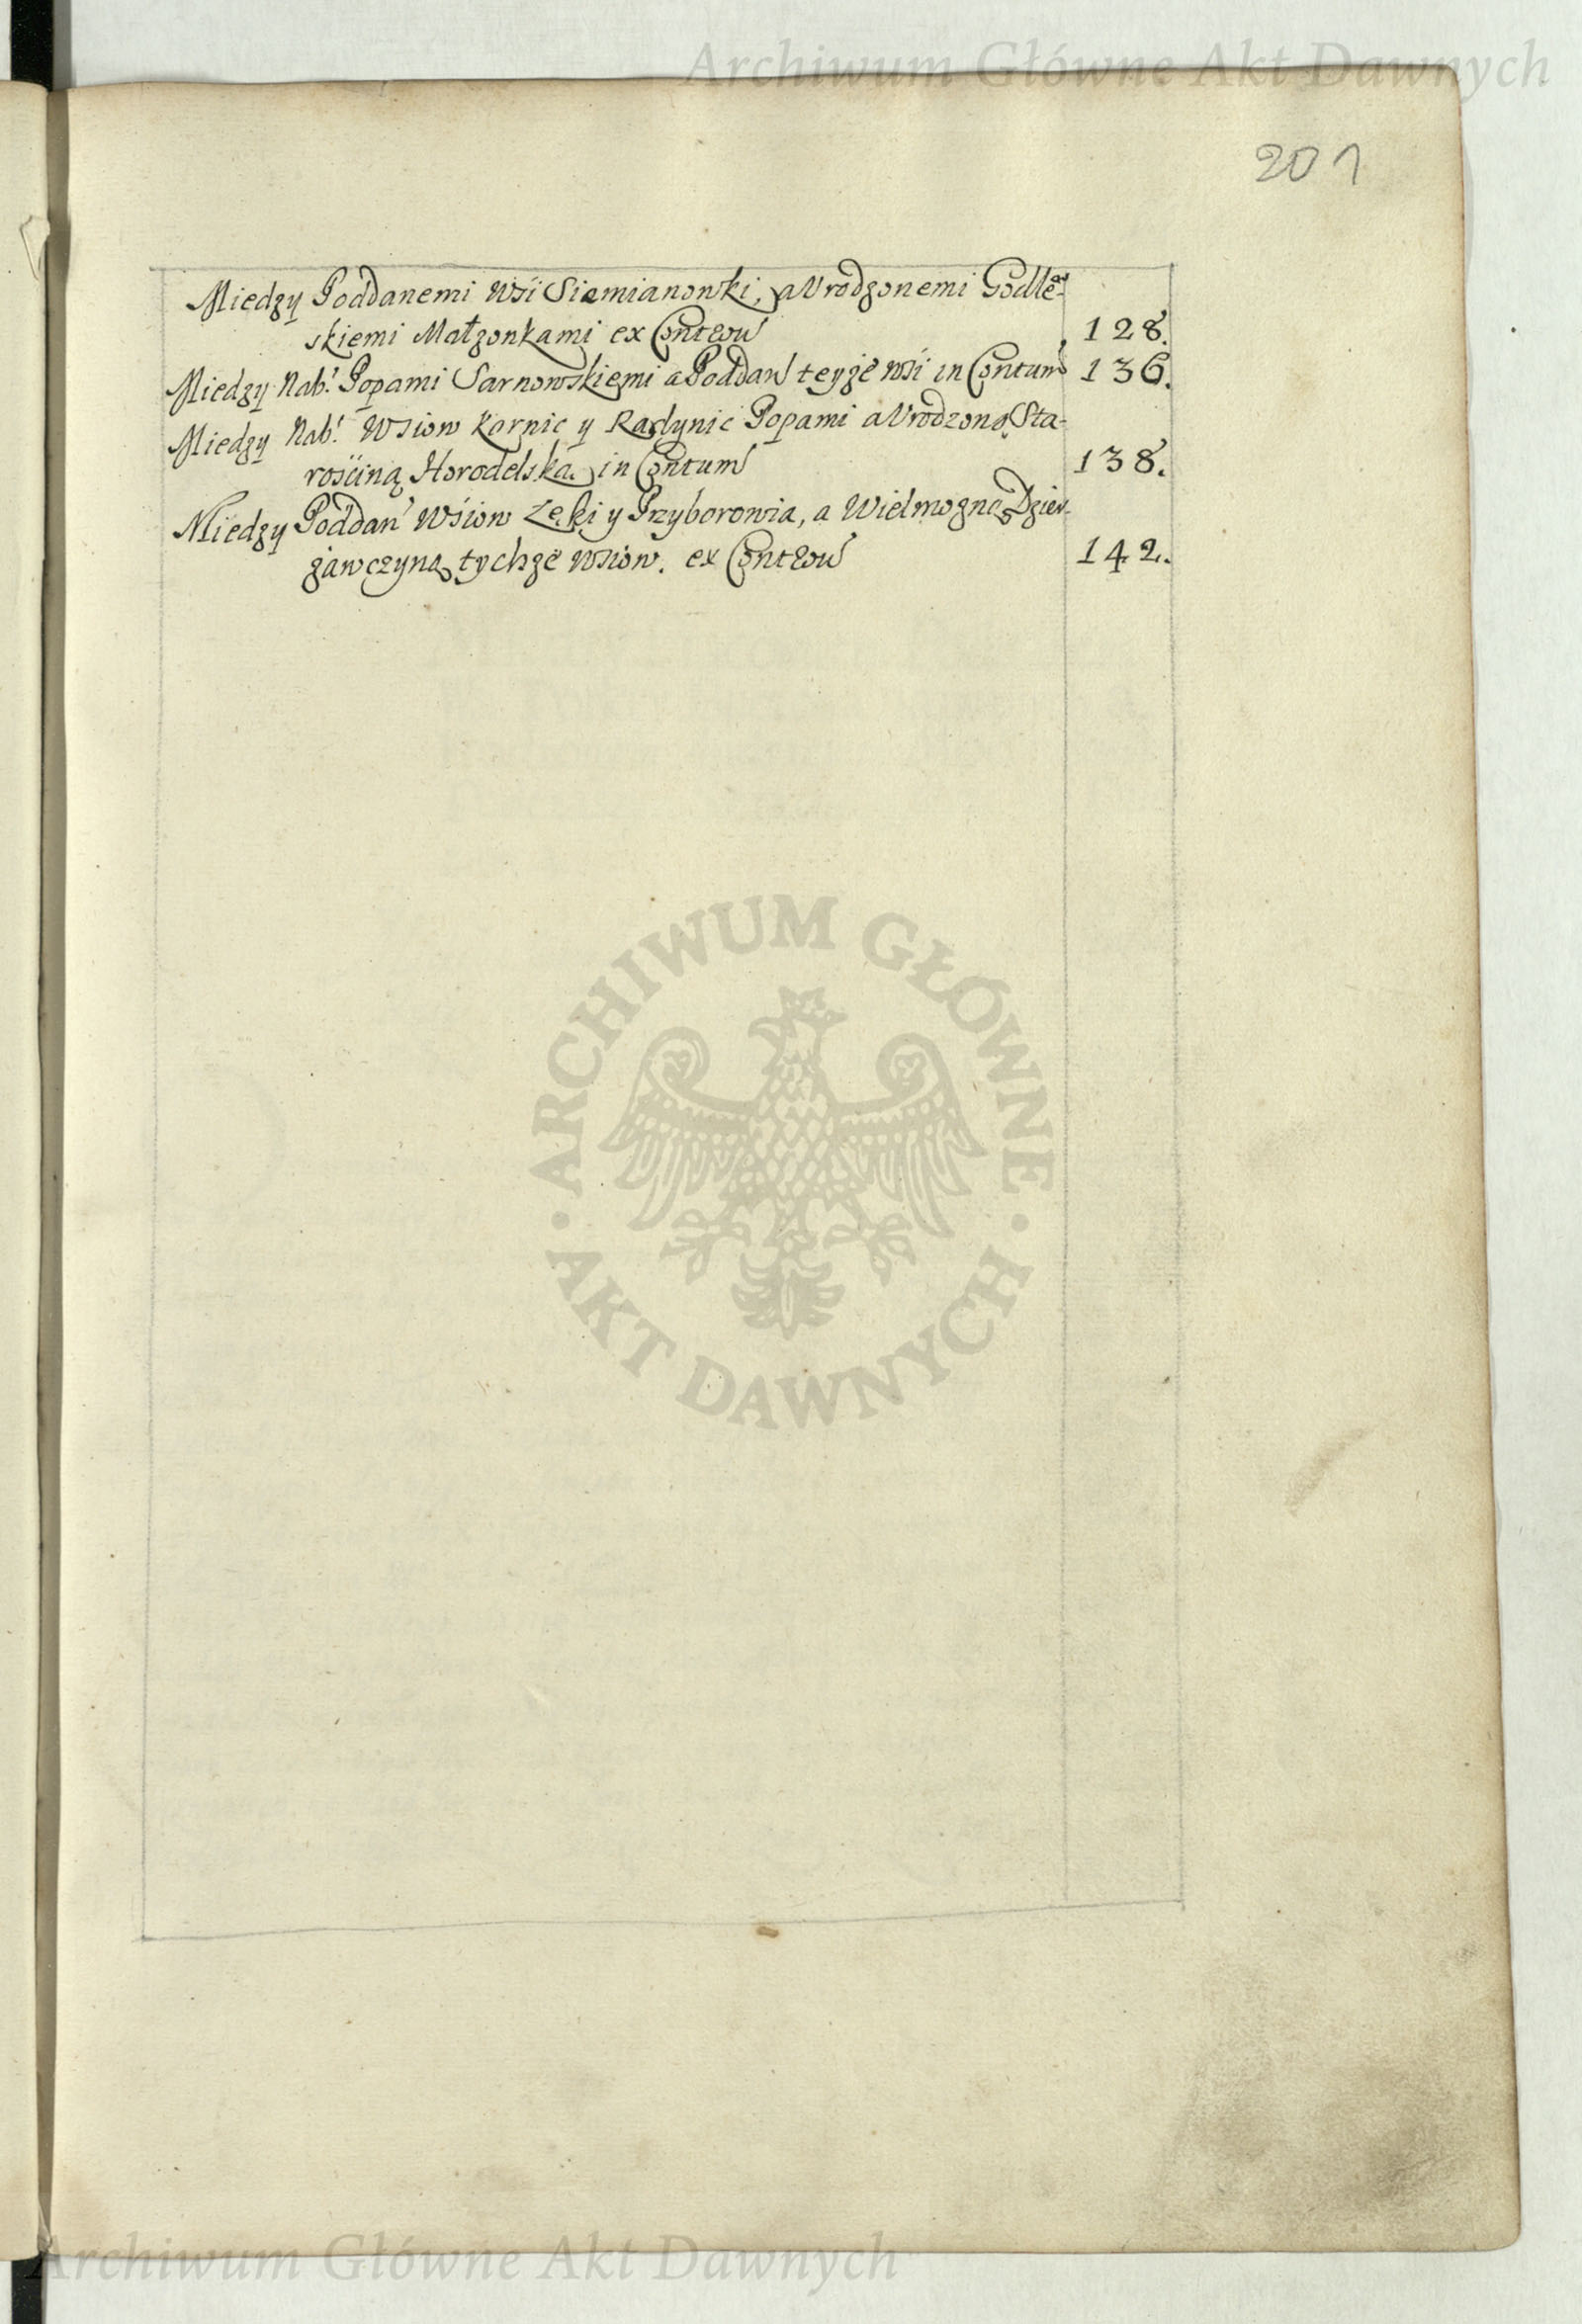 Archiwum Główne Akt Dawnych
201
Miedzy Poddanemi Wsi Siemianowki, a Urodzonemi Godle-
skiemi Małzonkami ex Controu 128.
Miedzy Nab: Popami Sarnowskiemi a Poddan teyże wsi in Contum 136.
Miedzy Nab: Wsiow Karnic y Radynic Popami a Urodzoną Sta-
rościną Horodelską in Contum 138.
Miedzy Poddan Wsiow Łęki y Przyborowia, a Wielmozną Dzier-
zawczyną tychze wsiow. ex Controu 142.
ARCHIWUM GŁÓWNE
AKT DAWNYCH
Archiwum Główne Akt Dawnych